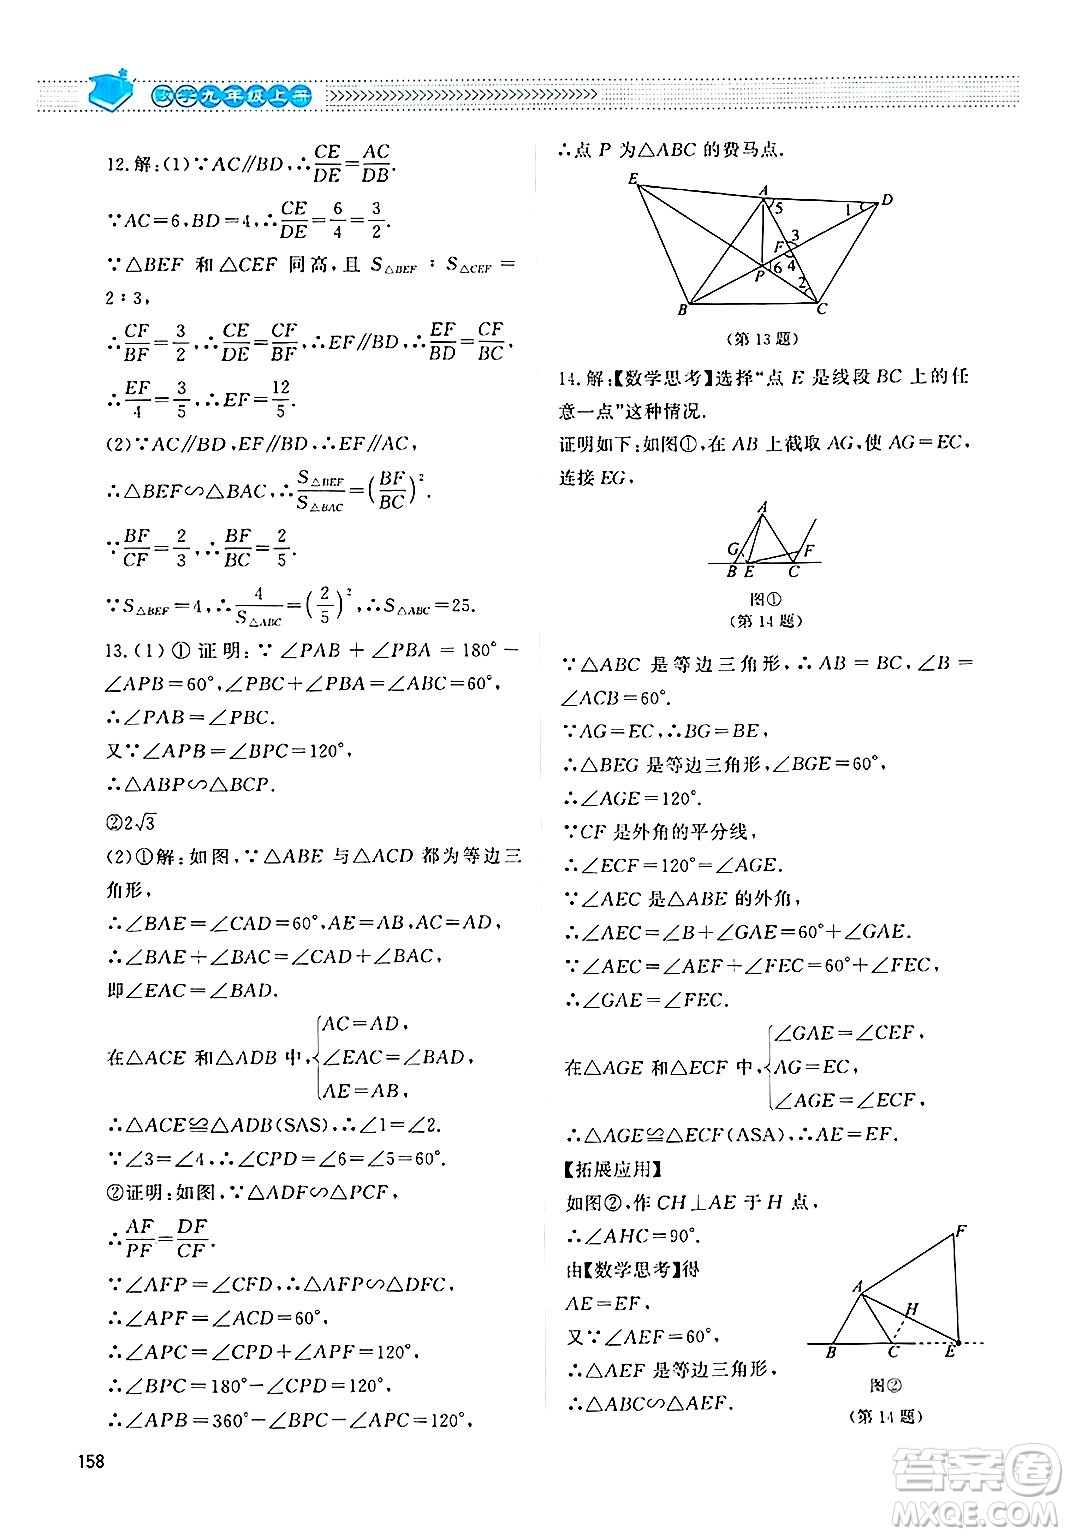 数学九年级上册
12.解:(1)∵AC∥BD,∴CE/DE=AC/DB.
∵AC=6,BD=4,∴CE/DE=6/4=3/2.
∵△BEF 和△CEF 同高,且 S△BEF∶S△CEF=
2∶3,
∴CF/BF=3/2,∴CE/DE=CF/BF,∴EF∥BD,∴EF/BD=CF/BC,
∴EF/4=3/5,∴EF=12/5.
(2)∵AC∥BD,EF∥BD,∴EF∥AC,
∴△BEF∽△BAC,∴S△BEF/S△BAC=(BF/BC)².
∵BF/CF=2/3,∴BF/BC=2/5.
∵S△BEF=4,∴4/S△ABC=(2/5)²,∴S△ABC=25.
13.(1)①证明:∵∠PAB+∠PBA=180°−
∠APB=60°,∠PBC+∠PBA=∠ABC=60°,
∴∠PAB=∠PBC.
又∵∠APB=∠BPC=120°,
∴△ABP∽△BCP.
②2√3
(2)①解:如图,∵△ABE 与△ACD 都为等边三
角形,
∴∠BAE=∠CAD=60°,AE=AB,AC=AD,
∴∠BAE+∠BAC=∠CAD+∠BAC,
即∠EAC=∠BAD.
在△ACE 和△ADB 中,{AC=AD,
∠EAC=∠BAD,
AE=AB,
∴△ACE≌△ADB(SAS),∴∠1=∠2.
∵∠3=∠4,∴∠CPD=∠6=∠5=60°.
②证明:如图,∵△ADF∽△PCF,
∴AF/PF=DF/CF.
∵∠AFP=∠CFD,∴△AFP∽△DFC,
∴∠APF=∠ACD=60°,
∴∠APC=∠CPD+∠APF=120°,
∴∠BPC=180°−∠CPD=120°,
∴∠APB=360°−∠BPC−∠APC=120°,
158
∴点 P 为△ABC 的费马点.
E A 5 1 D 3 F 4 P 6 2 B C
(第 13 题)
14.解:【数学思考】选择“点 E 是线段 BC 上的任
意一点”这种情况.
证明如下:如图①,在 AB 上截取 AG,使 AG=EC,
连接 EG,
A G F B E C
图①
(第 14 题)
∵△ABC 是等边三角形,∴AB=BC,∠B=
∠ACB=60°.
∵AG=EC,∴BG=BE,
∴△BEG 是等边三角形,∠BGE=60°,
∴∠AGE=120°.
∵CF 是外角的平分线,
∴∠ECF=120°=∠AGE.
∵∠AEC 是△ABE 的外角,
∴∠AEC=∠B+∠GAE=60°+∠GAE.
∵∠AEC=∠AEF+∠FEC=60°+∠FEC,
∴∠GAE=∠FEC.
在△AGE 和△ECF 中,{∠GAE=∠CEF,
AG=EC,
∠AGE=∠ECF,
∴△AGE≌△ECF(ASA),∴AE=EF.
【拓展应用】
如图②,作 CH⊥AE 于 H 点,
∴∠AHC=90°.
由【数学思考】得
AE=EF,
又∵∠AEF=60°,
∴△AEF 是等边三角形,
∴△ABC∽△AEF.
F A H B C E
图②
(第 14 题)
答案圈
MXQE.COM